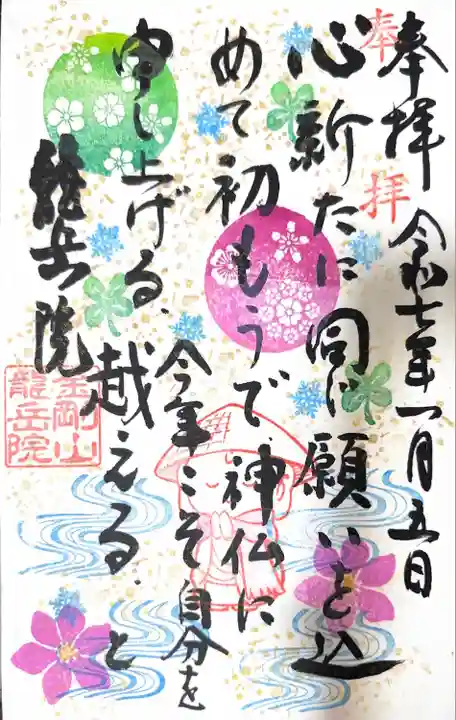 奉拝
奉拝 令和七年一月五日
心新たに同じ願いを込
めて初もうで.神仏に
申し上げる.今年こそ自分を
越える.と
龍岳院
金剛山
龍岳院